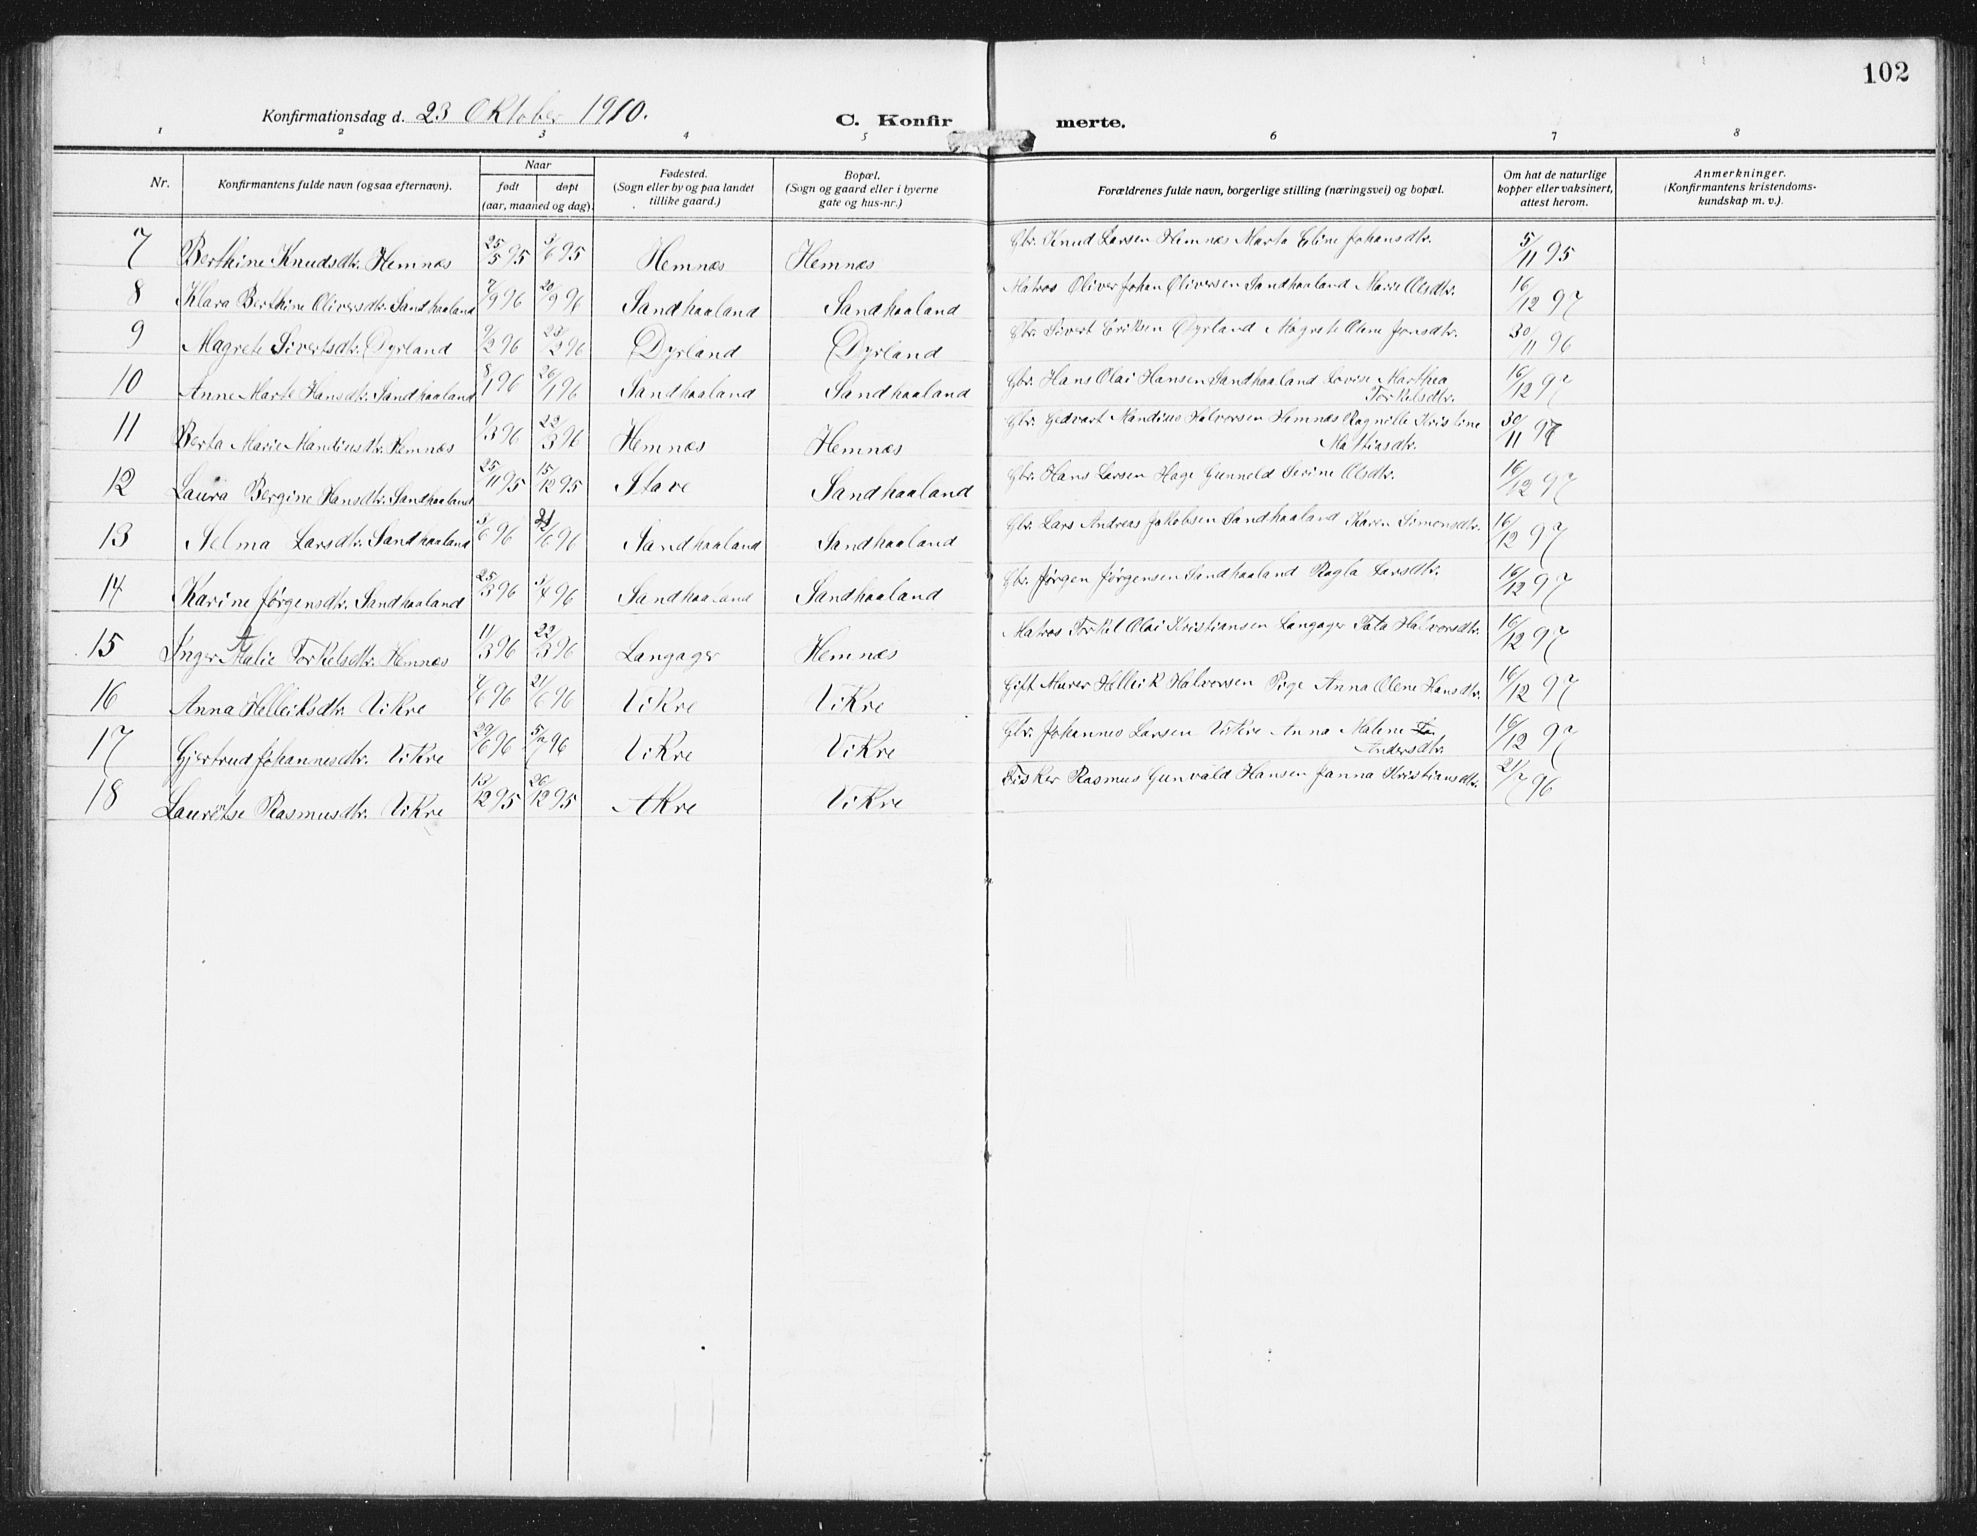 102
Konfirmationsdag d. 23 Oktober 1910. C. Konfirmerte.
1 2 3 4 5 6 7 8
Nr. Konfirmantens fulde navn (ogsaa efternavn). Naar født døpt (aar, maaned og dag). Fødested. (Sogn eller by og paa landet tillike gaard.) Bopæl. (Sogn og gaard eller i byerne gate og hus-nr.) Forældrenes fulde navn, borgerlige stilling (næringsvei) og bopæl. Om hat de naturlige kopper eller vaksinert, attest herom. Anmerkninger. (Konfirmantens kristendoms-kundskap m. v.).
7 Berthine Knudsdtr. Hemnæs 25/5 95 3/6 95 Hemnæs Hemnæs Gbr. Knud Larsen Hemnæs Marta Eline Johansdtr. 5/11 95
8 Klara Berthine Oliversdtr. Sandhaaland 7/9 96 20/9 96 Sandhaaland Sandhaaland Matros Oliver Johan Oliversen Sandhaaland Marie Olsdtr. 16/12 97
9 Magrete Sivertsdtr. Dyrland 9/2 96 23/2 96 Dyrland Dyrland Gbr. Sivert Eriksen Dyrland Magrete Olene Jonsdtr. 30/11 96
10 Anne Marte Hansdtr. Sandhaaland 8/1 96 26/1 96 Sandhaaland Sandhaaland Gbr. Hans Olai Hansen Sandhaaland Lovise Marthea 16/12 97
Torkelsdtr.
11 Berta Marie Mandiusdtr. Hemnæs 1/3 96 22/3 96 Hemnæs Hemnæs Gbr. Gedvart Mandius Halvorsen Hemnæs Ragnille Kristine 30/11 97
Mattiasdtr.
12 Laura Bergine Hansdtr. Sandhaaland 25/11 95 15/12 95 Stave Sandhaaland Gbr. Hans Larsen Hage Gunneld Serine Olsdtr. 16/12 97
13 Selma Larsdtr. Sandhaaland 3/6 96 21/6 96 Sandhaaland Sandhaaland Gbr. Lars Andreas Jakobsen Sandhaaland Karen Simonsdtr. 16/12 97
14 Karine Jørgensdtr. Sandhaaland 25/3 96 3/4 96 Sandhaaland Sandhaaland Gbr. Jørgen Jørgensen Sandhaaland Ragla Larsdtr. 16/12 97
15 Inger Malie Torkelsdtr. Hemnæs 11/3 96 22/3 96 Langager Hemnæs Matros Torkel Olai Kristiansen Langager Tala Halvorsdtr. 16/12 97
16 Anna Helleiksdtr. Vikre 7/6 96 21/6 96 Vikre Vikre Gift Murer Helleik Halvorsen Pige Anna Olene Hansdtr. 16/12 97
17 Gjertrud Johannesdtr. Vikre 29/6 96 5/7 96 Vikre Vikre Gbr. Johannes Larsen Vikre Anna Malene 16/12 97
Andersdtr.
18 Lauretse Rasmusdtr. Vikre 13/12 95 26/12 95 Akre Vikre Fisker Rasmus Gunvald Hansen Janna Kristiansdtr. 21/7 96